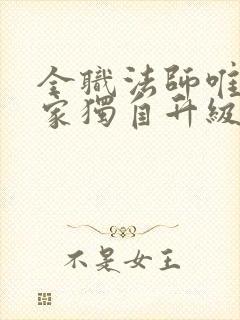 全職法師唯
家獨自升級
不是女王